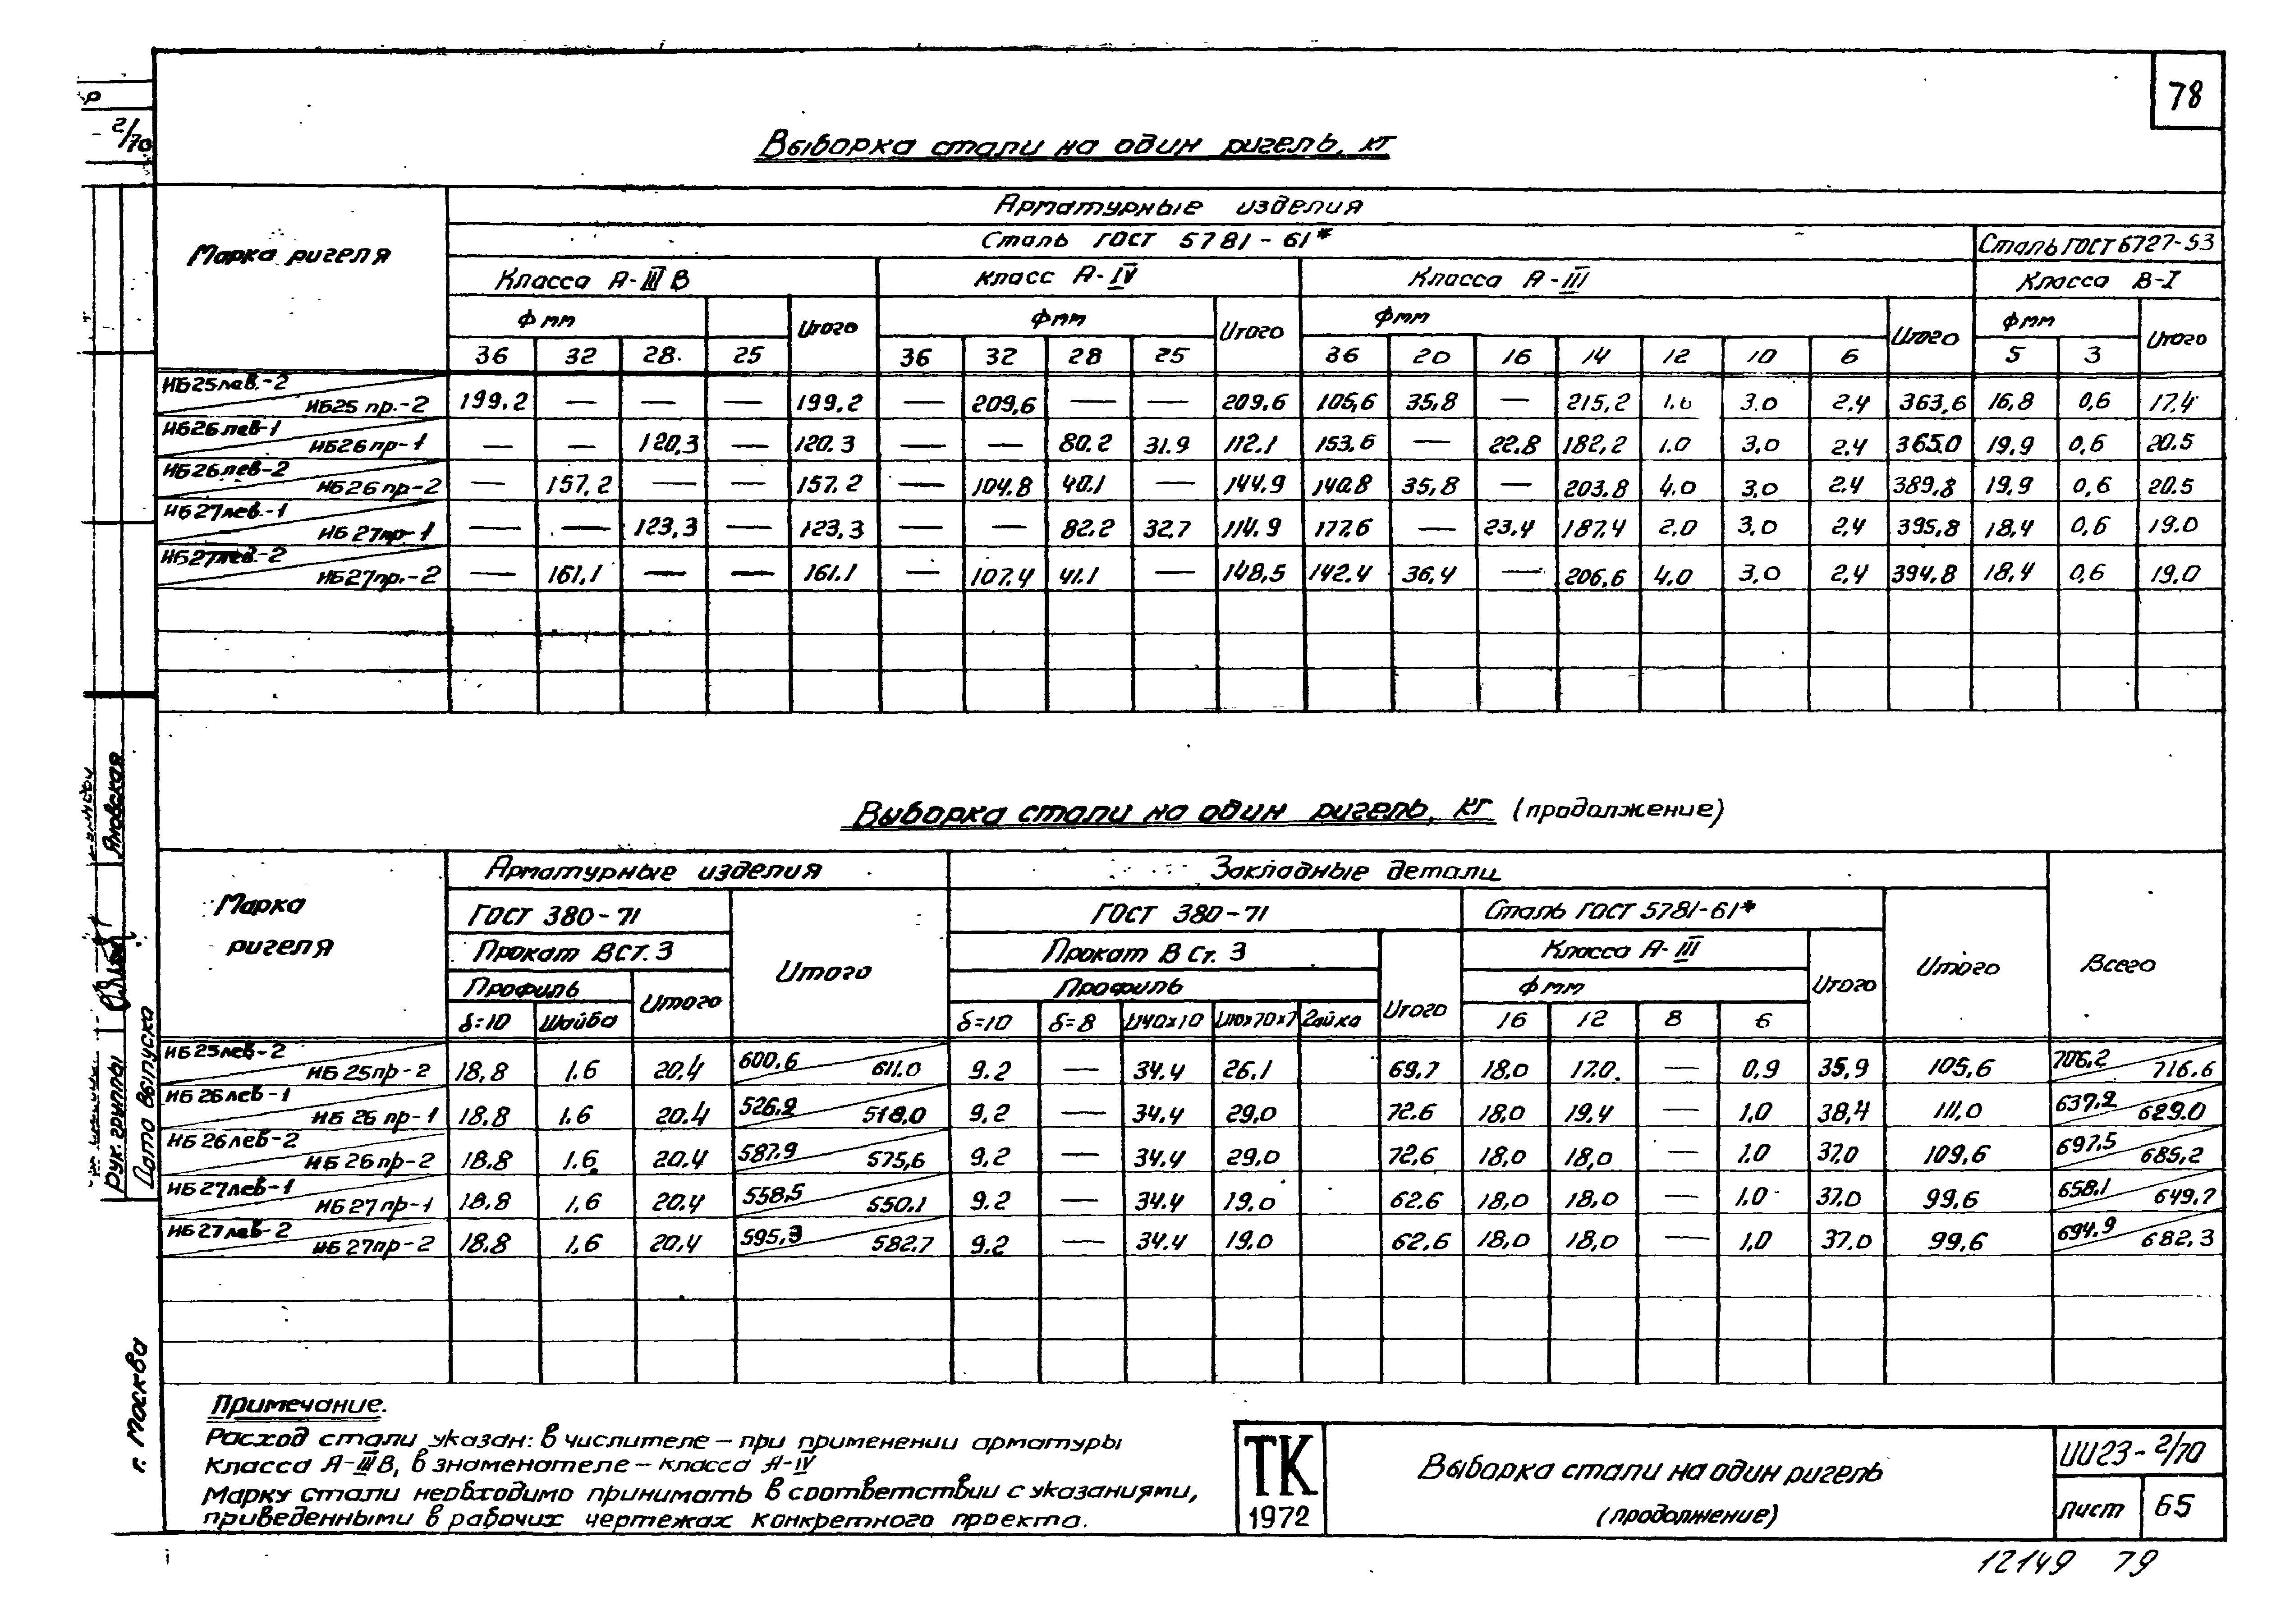 78
2/70
Выборка стали на один ригель, кг
Марка ригеля
Арматурные изделия
Сталь ГОСТ 5781-61*
Сталь ГОСТ 6727-53
Класса А-III В
Класс А-IV
Класса А-III
Класса В-I
Ф мм Итого Ф мм Итого Ф мм Итого Ф мм Итого
36 32 28 25 36 32 28 25 36 20 16 14 12 10 6 5 3
НБ25лев.-2
НБ25 пр.-2 199,2 — — — 199,2 — 209,6 — — 209,6 106,6 35,8 — 215,2 3,0 2,4 363,6 16,8 0,6 17,4
НБ26лев-1
НБ26пр-1 — — 120,3 — 120,3 — — 80,2 31,9 112,1 153,6 — 22,8 182,2 1,0 3,0 2,4 365,0 19,9 0,6 20,5
НБ26лев-2
НБ26пр-2 — 157,2 — — 157,2 — 104,8 40,1 — 144,9 140,8 35,8 — 203,8 4,0 3,0 2,4 389,8 19,9 0,6 20,5
НБ27лев-1
НБ27пр-1 — — 123,3 — 123,3 — — 82,2 32,7 114,9 177,6 — 23,4 187,4 2,0 3,0 2,4 395,8 18,4 0,6 19,0
НБ27лев.-2
НБ27пр.-2 — 161,1 — — 161,1 — 107,4 41,1 — 148,5 142,4 36,4 — 206,6 4,0 3,0 2,4 394,8 18,4 0,6 19,0
Выборка стали на один ригель, кг (продолжение)
Марка
ригеля
Арматурные изделия
Закладные детали
Всего
ГОСТ 380-71
Итого
ГОСТ 380-71
Сталь ГОСТ 5781-61*
Итого
Прокат ВСт.3
Прокат В Ст. 3
Итого
Класса А-III
Итого
Профиль
Итого
Профиль
Ф мм
δ=10 Шайба δ=10 δ=8 Гайка 16 12 8 6
НБ25лев-2
НБ25пр-2 18,8 1.6 20,4 600,6 611,0 9.2 — 34,4 26,1 69,7 18,0 17,0 — 0,9 35,9 105,6 706,2 716,6
НБ26лев-1
НБ26 пр-1 18,8 1.6 20,4 526,2 518,0 9,2 — 34,4 29,0 72,6 18,0 19,4 — 1,0 38,4 111,0 637,2 629,0
НБ26лев-2
НБ26пр-2 18.8 1.6 20,4 587,9 575,6 9,2 — 34,4 29,0 72,6 18,0 18,0 — 1,0 37,0 109,6 697,5 685,2
НБ27лев-1
НБ27пр-1 18,8 1,6 20,4 558,5 550,1 9.2 — 34,4 19,0 62,6 18,0 18,0 — 1,0 37,0 99,6 658,1 649,7
НБ27лев-2
НБ27пр-2 18,8 1,6 20,4 595,3 582,7 9,2 — 34,4 19,0 62,6 18,0 18,0 — 1,0 37,0 99,6 694,9 682,3
Яновская
Рук. группы
Дата выпуска
г. Москва
Примечание.
Расход стали указан: в числителе – при применении арматуры
класса А-IIIВ, в знаменателе – класса А-IV
Марку стали необходимо принимать в соответствии с указаниями,
приведенными в рабочих чертежах конкретного проекта.
ТК
1972
Выборка стали на один ригель
(продолжение)
ИИ23-2/70
Лист 65
12149 79